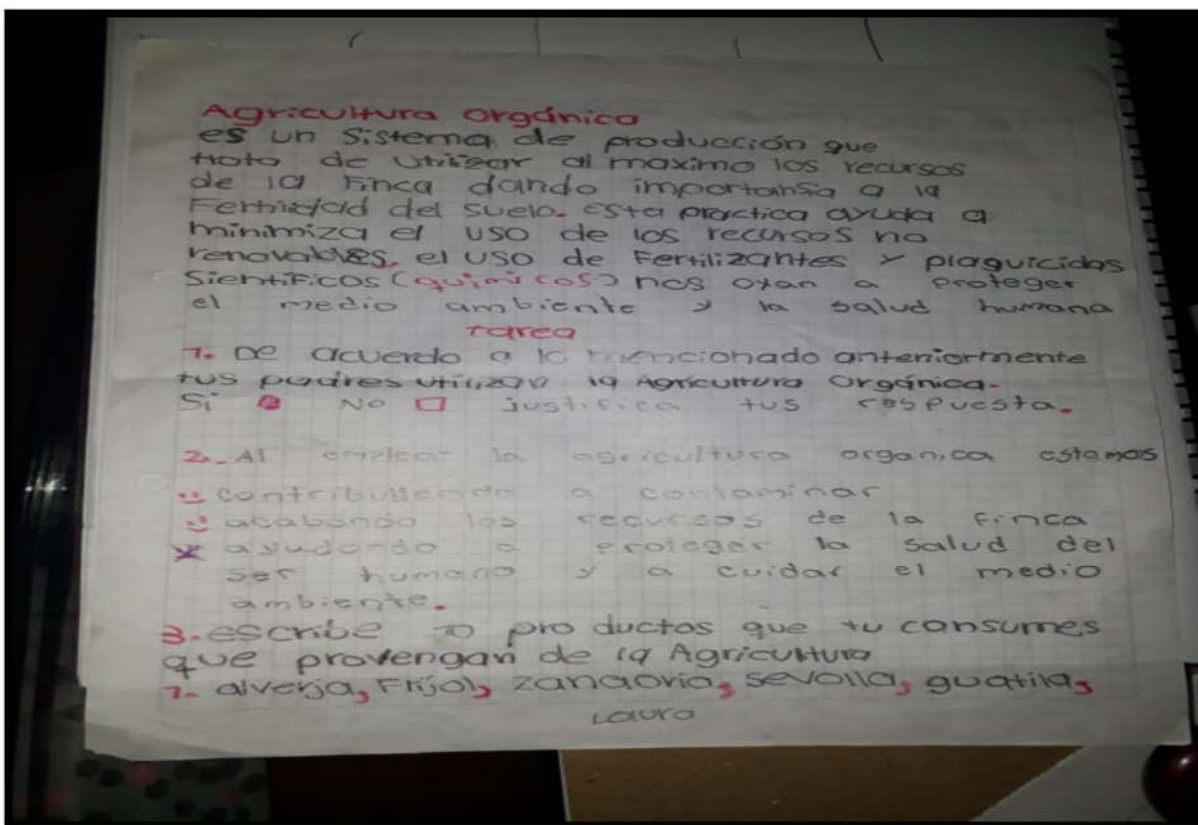 Agricultura orgánica
es un Sistema de producción que
trata de utilizar al maximo los recursos
de la Finca dando importansia a la
Fertilidad del suelo. esta practica ayuda a
minimiza el uso de los recursos no
renovables, el uso de Fertilizantes y plaguicidas
SientiFicos (quimicos) nos a
proteger
el medio ambiente y la salud humana
tarea
1. De acuerdo a lo mencionado anteriormente
tus padres utilizan la Agricultura Orgánica.
Si No justifica tus respuesta.
2. Al emplear la agricultura organica estamos
contribullendo a contaminar
acabando los recursos de la Finca
x ayudando a proteger la salud del
ser humano y a cuidar el medio
ambiente.
3. escribe 10 productos que tu consumes
que provengan de la Agricultura
1. alverja, Frijol, zanaoria, sevolla, guatila,
Laura